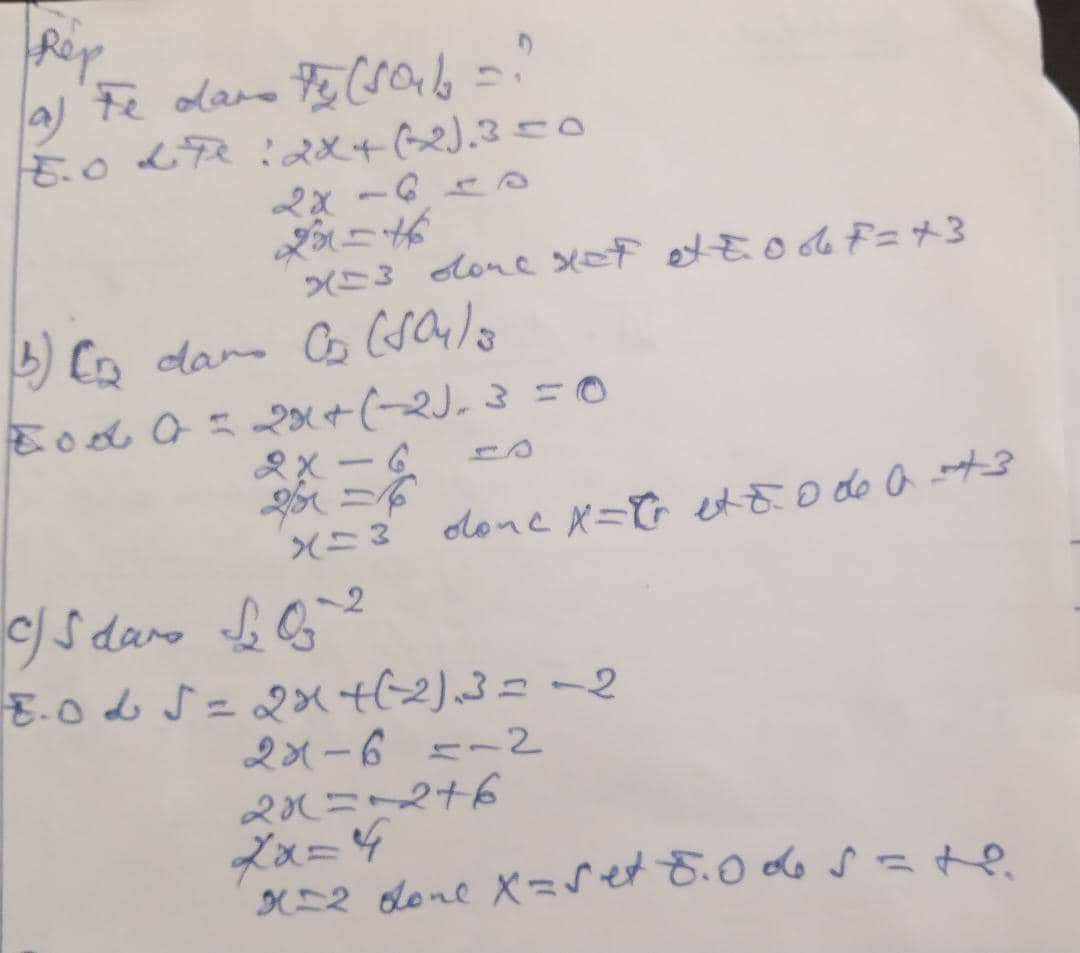 Rép
a) Fe dans Fe2(SO4)3 = ?
E.O de Fe : 2x + (-2).3 = 0
2x - 6 = 0
2x = +6
x = 3 donc x = F et E.O de F = +3
b) Cr2 dans Cr2(SO4)3
E.O de Cr = 2x + (-2).3 = 0
2x - 6 = 0
2x = 6
x = 3 donc x = Cr et E.O de Cr = +3
c) S dans S2O3^-2
E.O de S = 2x + (-2).3 = -2
2x - 6 = -2
2x = -2 + 6
2x = 4
x = 2 donc x = S et E.O de S = +2.